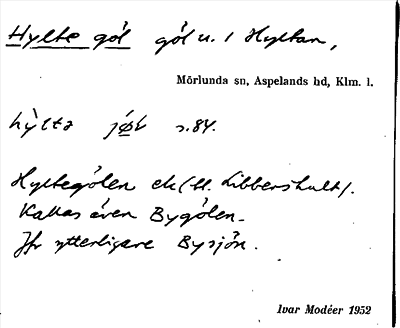 Hylte göl göl n. / Hyltan,
Mörlunda sn, Aspelands hd, Klm. l.
s. 84.
Hyltegölen ek (St. Libbershult).
Kallas även Bygölen.
Jfr ytterligare Bysjön.
Ivar Modéer 1952